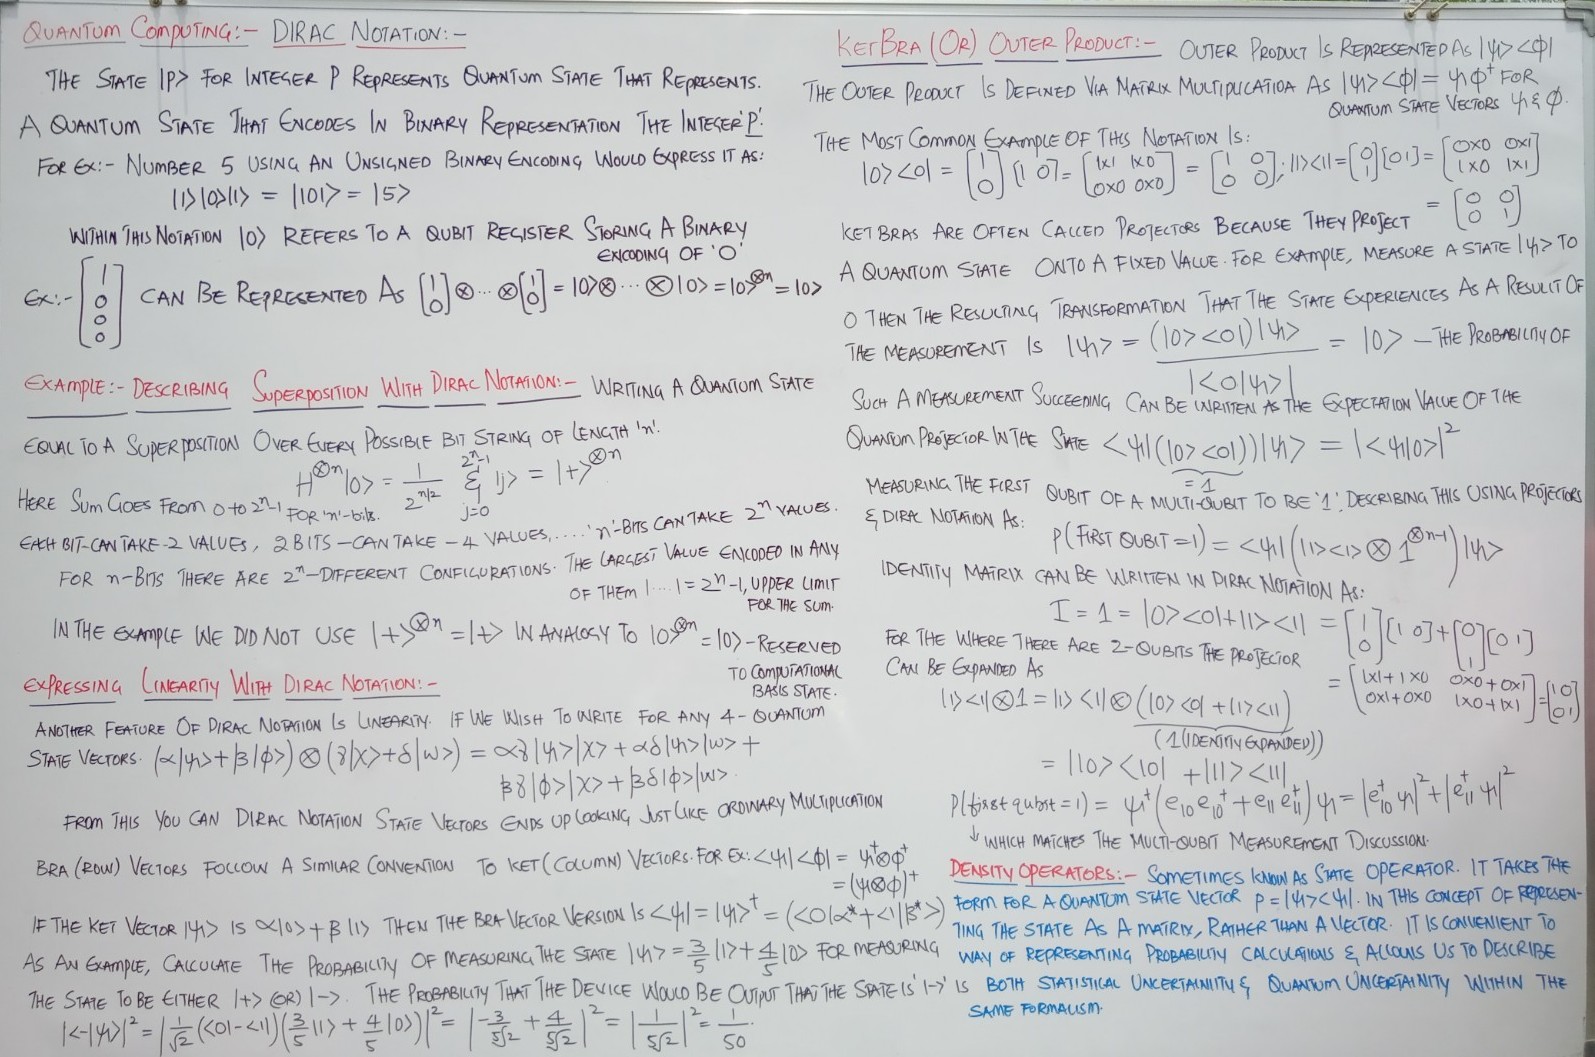 QUANTUM COMPUTING:- DIRAC NOTATION:-
THE STATE |P> FOR INTEGER P REPRESENTS QUANTUM STATE THAT REPRESENTS.
A QUANTUM STATE THAT ENCODES IN BINARY REPRESENTATION THE INTEGER 'P'.
FOR EX:- NUMBER 5 USING AN UNSIGNED BINARY ENCODING WOULD EXPRESS IT AS:
|1>|0>|1> = |101> = |5>
WITHIN THIS NOTATION |0> REFERS TO A QUBIT REGISTER STORING A BINARY
ENCODING OF '0'
EX:- [1 0 0 0] CAN BE REPRESENTED AS [1 0] ⊗ ... ⊗ [1 0] = |0>⊗ ... ⊗|0> = |0>^⊗n = |0>
EXAMPLE:- DESCRIBING SUPERPOSITION WITH DIRAC NOTATION:- WRITING A QUANTUM STATE
EQUAL TO A SUPERPOSITION OVER EVERY POSSIBLE BIT STRING OF LENGTH 'n'.
H^⊗n |0> = 1/2^n/2 Σ j=0 2^n-1 |j> = |+>^⊗n
HERE SUM GOES FROM 0 to 2^n-1 FOR 'n'-bits.
EACH BIT-CAN TAKE-2 VALUES, 2 BITS-CAN TAKE-4 VALUES, .... 'n'-BITS CAN TAKE 2^n VALUES.
FOR n-BITS THERE ARE 2^n-DIFFERENT CONFIGURATIONS. THE LARGEST VALUE ENCODED IN ANY
OF THEM 1....1 = 2^n-1, UPPER LIMIT
FOR THE SUM.
IN THE EXAMPLE WE DID NOT USE |+>^⊗n = |+> IN ANALOGY TO |0>^⊗n = |0> - RESERVED
TO COMPUTATIONAL
BASIS STATE.
EXPRESSING LINEARITY WITH DIRAC NOTATION:-
ANOTHER FEATURE OF DIRAC NOTATION IS LINEARITY. IF WE WISH TO WRITE FOR ANY 4-QUANTUM
STATE VECTORS. (α|ψ>+β|φ>) ⊗ (γ|χ>+δ|w>) = αγ|ψ>|χ> + αδ|ψ>|w> +
βγ|φ>|χ> + βδ|φ>|w>.
FROM THIS YOU CAN DIRAC NOTATION STATE VECTORS ENDS UP LOOKING JUST LIKE ORDINARY MULTIPLICATION
BRA (ROW) VECTORS FOLLOW A SIMILAR CONVENTION TO KET (COLUMN) VECTORS. FOR EX: <ψ|<φ| = ψ†⊗φ†
= (ψ⊗φ)†
IF THE KET VECTOR |ψ> IS α|0> + β|1> THEN THE BRA VECTOR VERSION IS <ψ| = |ψ>† = (<0|α* + <1|β*>)
AS AN EXAMPLE, CALCULATE THE PROBABILITY OF MEASURING THE STATE |ψ> = 3/5 |1> + 4/5 |0> FOR MEASURING
THE STATE TO BE EITHER |+> (OR) |->. THE PROBABILITY THAT THE DEVICE WOULD BE OUTPUT THAT THE STATE IS '|->' IS
|<-|ψ>|² = |1/√2 (<0|-<1|)(3/5 |1> + 4/5 |0>)|² = |-3/5√2 + 4/5√2|² = |1/5√2|² = 1/50.
KETBRA (OR) OUTER PRODUCT:- OUTER PRODUCT IS REPRESENTED AS |ψ><φ|
THE OUTER PRODUCT IS DEFINED VIA MATRIX MULTIPLICATION AS |ψ><φ| = ψφ† FOR
QUANTUM STATE VECTORS ψ & φ.
THE MOST COMMON EXAMPLE OF THIS NOTATION IS:
|0><0| = [1 0] [1 0] = [1x1 1x0 0x0 0x0] = [1 0 0 0]; |1><1| = [0 1][0 1] = [0x0 0x1 1x0 1x1]
= [0 0 0 1]
KETBRAS ARE OFTEN CALLED PROJECTORS BECAUSE THEY PROJECT
A QUANTUM STATE ONTO A FIXED VALUE. FOR EXAMPLE, MEASURE A STATE |ψ> TO
0 THEN THE RESULTING TRANSFORMATION THAT THE STATE EXPERIENCES AS A RESULT OF
THE MEASUREMENT IS |ψ> = (|0><0|)|ψ> / |<0|ψ>| = |0> - THE PROBABILITY OF
SUCH A MEASUREMENT SUCCEEDING CAN BE WRITTEN AS THE EXPECTATION VALUE OF THE
QUANTUM PROJECTOR IN THE STATE <ψ|(|0><0|)|ψ> = |<ψ|0>|²
= 1
MEASURING THE FIRST QUBIT OF A MULTI-QUBIT TO BE '1'. DESCRIBING THIS USING PROJECTORS
& DIRAC NOTATION AS: P(FIRST QUBIT=1) = <ψ|(|1><1> ⊗ 1^⊗n-1)|ψ>
IDENTITY MATRIX CAN BE WRITTEN IN DIRAC NOTATION AS:
I = 1 = |0><0|+|1><1| = [1 0][1 0]+[0 1][0 1]
FOR THE WHERE THERE ARE 2-QUBITS THE PROJECTOR
CAN BE EXPANDED AS
= [1x1+1x0 0x0+0x1 0x1+0x0 1x0+1x1] = [1 0 0 1]
|1><1|⊗1 = |1><1|⊗(|0><0| + |1><1|)
(1 (IDENTITY EXPANDED))
= |10><10| + |11><11|
P(first qubit = 1) = ψ†(e10 e10† + e11 e11†)ψ = |e10† ψ|² + |e11† ψ|²
↓ WHICH MATCHES THE MULTI-QUBIT MEASUREMENT DISCUSSION.
DENSITY OPERATORS:- SOMETIMES KNOW AS STATE OPERATOR. IT TAKES THE
FORM FOR A QUANTUM STATE VECTOR ρ = |ψ><ψ|. IN THIS CONCEPT OF REPRESEN-
TING THE STATE AS A MATRIX, RATHER THAN A VECTOR. IT IS CONVENIENT TO
WAY OF REPRESENTING PROBABILITY CALCULATIONS & ALLOWS US TO DESCRIBE
BOTH STATISTICAL UNCERTAINITY & QUANTUM UNCERTAINITY WITHIN THE
SAME FORMALISM.